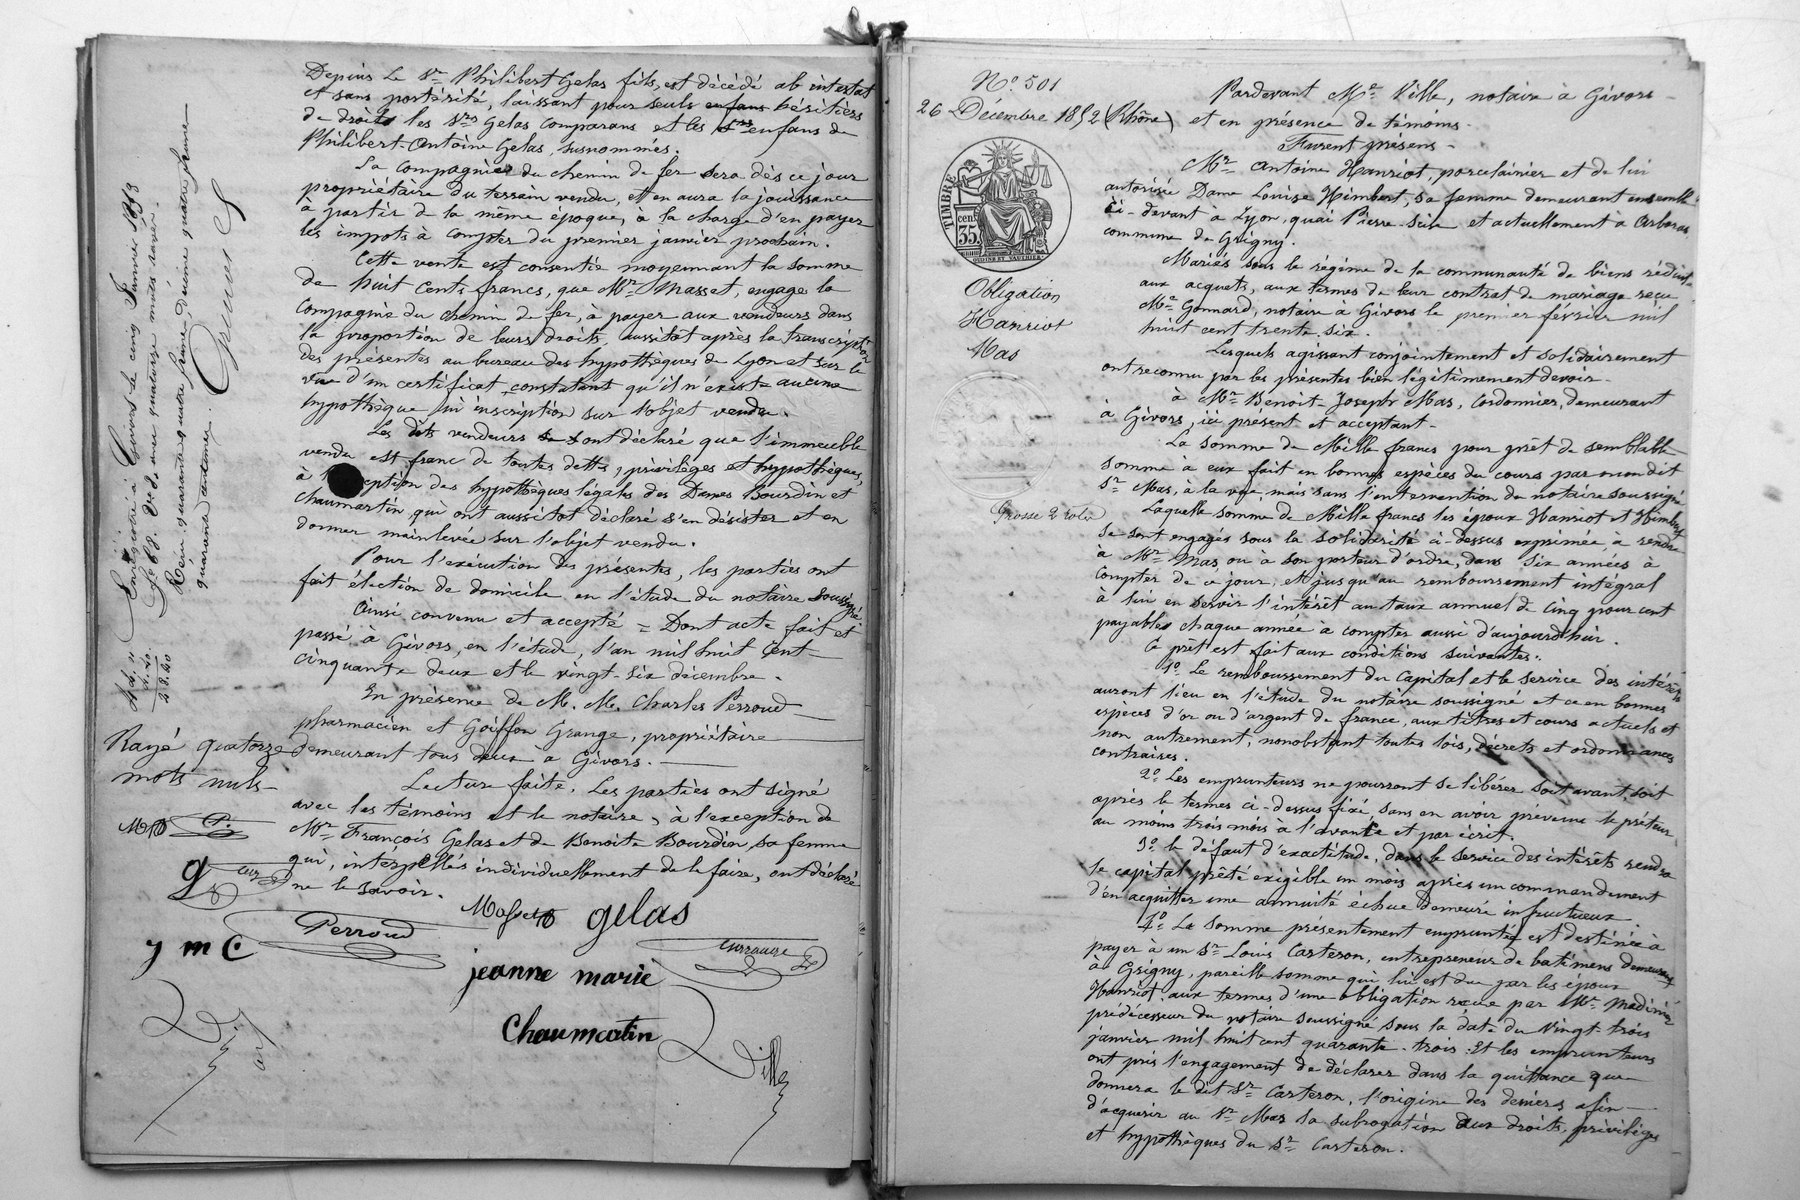 Depuis le Sr Philibert Gelas fils, est décédé ab intestat
et sans postérité, laissant pour seuls enfans héritiers
de droits les Srs Gelas comparans et les enfans de
Philibert Antoine Gelas, susnommés.
La compagnie du chemin de fer sera dès ce jour
propriétaire du terrain vendu, et en aura la jouissance
à partir de la même époque, à la charge d'en payer
les impots à compter du premier janvier prochain.
Cette vente est consentie moyennant la somme
de huit cents francs, que Mr Masset, engage la
compagnie du chemin de fer, à payer aux vendeurs dans
la proportion de leurs droits, aussitot après la transcription
des présentes au bureau des hypothèques de Lyon et sur le
vue d'un certificat constatant qu'il n'existe aucune
hypothèque ni inscription sur l'objet vendu.
Les dits vendeurs ont déclaré que l'immeuble
vendu est franc de toutes dettes, privilèges et hypothèques,
à l' ception des hypothèques légales des Dames Bourdin et
Chaumartin qui ont aussitot déclaré s'en désister et en
donner mainlevée sur l'objet vendu.
Pour l'exécution des présentes, les parties ont
fait élection de domicile en l'étude du notaire soussigné
Ainsi convenu et accepté = Dont acte fait et
passé à Givors, en l'étude, l'an mil huit cent
cinquante deux et le vingt-six décembre.
En présence de M. M. Charles Perroud
pharmacien et Goiffon Grange, propriétaire
demeurant tous deux à Givors.
Lecture faite, Les parties ont signé
avec les témoins et le notaire, à l'exception de
Mr François Gelas et de Benoite Bourdin, sa femme
qui, intérpellés individuellement de le faire, ont déclaré
ne le savoir.
Masset gelas
Perroud
jeanne marie
Chaumartin
Ville
Rayé quatorze
mots nuls
P.
g
j m C
Enregistré à Givors le cinq Janvier 1853
quatorze mots rayés.
Reçu quarante quatre francs, décime quatre francs
quarante centimes.
44 "
4.40
48.40
No 501
26 Décembre 1852
(Rhône)
TIMBRE
35 cen.
Obligation
Hanriot
Mas
Grosse 2 rôles
Pardevant Me Ville, notaire à Givors
et en présence de témoins.
Furent présens
Mr Antoine Hanriot, porcelainier et de lui
autorisée Dame Louise Himbert, sa femme demeurant ensemble
ci-devant à Lyon, quai Pierre-Scize et actuellement à Arboras,
commune de Grigny.
Mariés sous le régime de la communauté de biens réduite
aux acquets, aux termes de leur contrat de mariage reçu
Me Gonnard, notaire à Givors le premier février mil
huit cent trente six.
Lesquels agissant conjointement et solidairement
ont reconnu par les présentes bien légitimement devoir
à Mr Benoit-Joseph Mas, cordonnier, demeurant
à Givors, ici présent et acceptant
La somme de Mille francs pour prêt de semblable
somme à eux fait en bonnes espèces du cours par mon dit
Sr Mas, à la vue, mais sans l'intervention du notaire soussigné
Laquelle somme de Mille francs les époux Hanriot et Himbert
se sont engagés sous la solidarité ci-dessus exprimée, à rendre
à Mr Mas ou à son porteur d'ordre, dans six années à
compter de ce jour, et jusqu'au remboursement intégral
à lui en servir l'intérêt au taux annuel de cinq pour cent
payables chaque année à compter aussi d'aujourd'hui.
Ce prêt est fait aux conditions suivantes:
1o Le remboursement du capital et le service des intérêts
auront lieu en l'étude du notaire soussigné et ce en bonnes
espèces d'or ou d'argent de france, aux titres et cours actuels et
non autrement, nonobstant toutes lois, décrets et ordonnances
contraires.
2o Les emprunteurs ne pourront se libérer soit avant, soit
après le termes ci-dessus fixé, sans en avoir prévenu le prêteur
au moins trois mois à l'avance et par écrit.
3o le défaut d'exactitude, dans le service des intérêts rendra
le capital prêté exigible un mois après un commandement
d'en acquitter une annuité échue demeuré infructueux.
4o La somme présentement empruntée est destinée à
payer à un Sr Louis Carteron, entrepreneur de batimens demeurant
à Grigny, pareille somme qui lui est due par les époux
Hanriot aux termes d'une obligation reçue par Me Madinier
prédécesseur du notaire soussigné sous la date du vingt-trois
janvier mil huit cent quarante-trois. Et les emprunteurs
ont pris l'engagement de déclarer dans la quittance que
donnera le dit Sr Carteron, l'origine des deniers afin
d'acquérir au Sr Mas la subrogation aux droits, privilèges
et hypothèques du Sr Carteron.